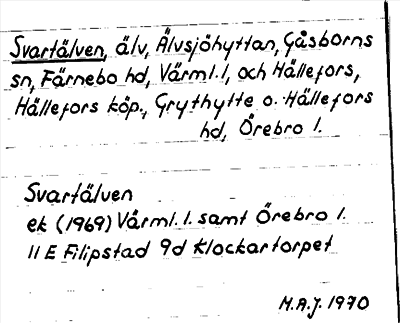 Svartälven, älv, Älvsjöhyttan, Gåsborns
sn, Färnebo hd, Värml. l, och Hällefors,
Hällefors köp., Grythytte o. Hällefors
hd, Örebro l.
Svartälven
ek (1969) Värml. l. samt Örebro l.
11 E Filipstad 9d Klockartorpet
M.A.J. 1970